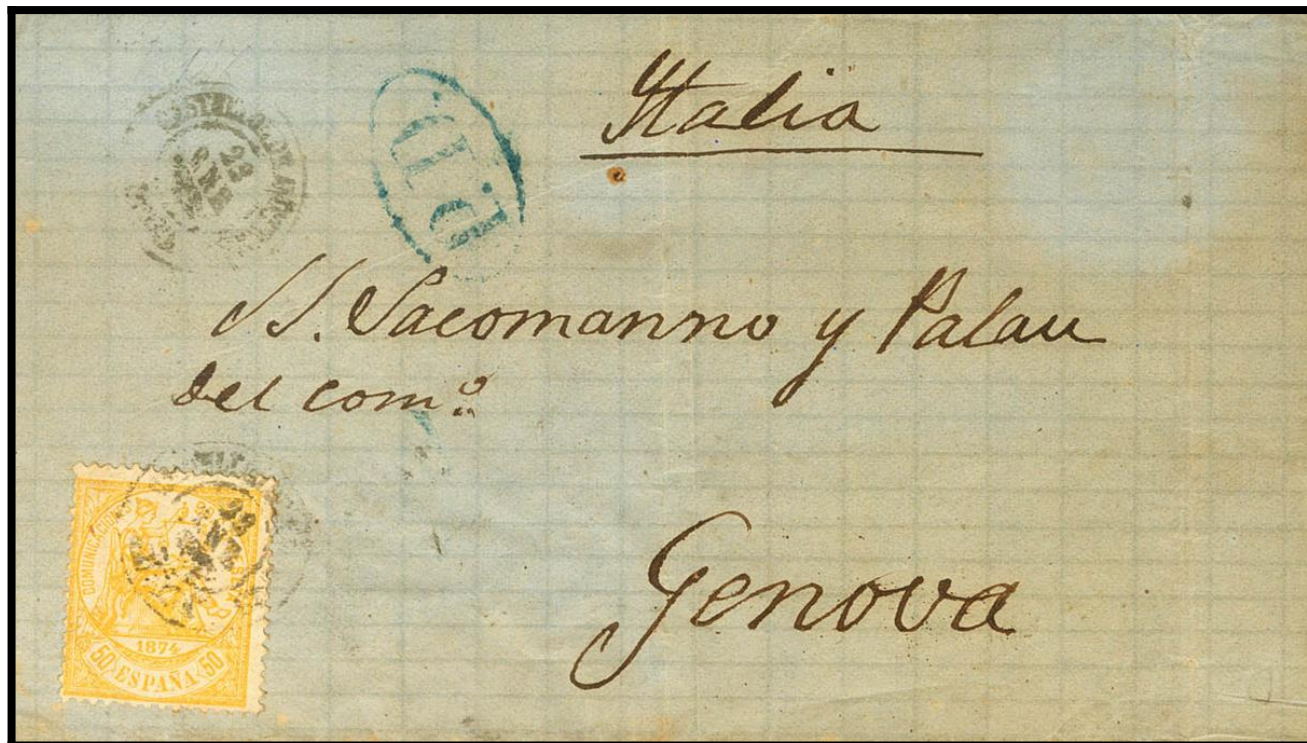 Italia
P.D.
22
SS. Sacomanno y Palau
del com.º
Genova
COMUNICACIONES
1874
50 ESPAÑA 50